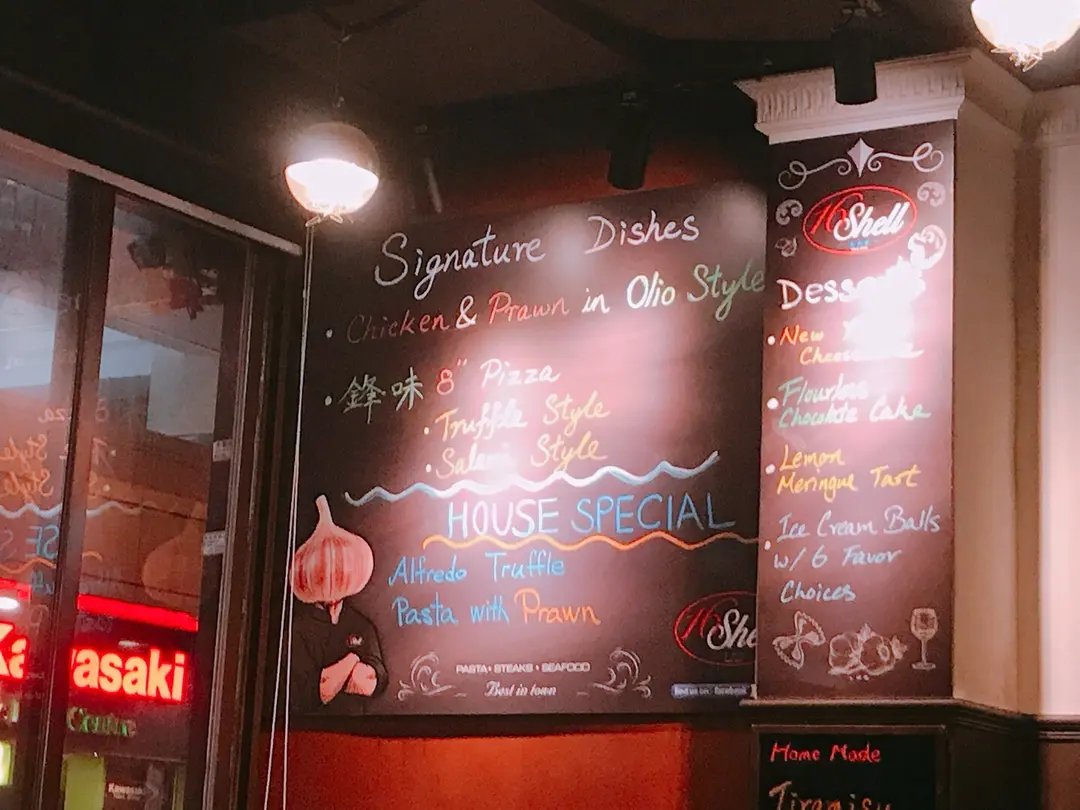 Signature Dishes
• Chicken & Prawn in Olio Style
• 鋒味 8" Pizza
• Truffle Style
• Salami Style
HOUSE SPECIAL
Alfredo Truffle
Pasta with Prawn
PASTA • STEAKS • SEAFOOD
Best in town
find us on: facebook
Shell
• New
• Flourless
Chocolate Cake
• Lemon
Meringue Tart
• Ice Cream Balls
w/ 6 Favor
Choices
Home Made
Tiramisu
Kawasaki
Centre
Kawasaki